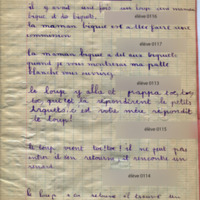 il y avait une fois un loup une maman
bique et 10 biquets.
élève 0116
la maman bique est allée faire une
commission
élève 0117
la maman bique a dit aux biquets
quand je vous montrerai ma patte
blanche vous ouvrirez
élève 0113
le loup y alla et frappa toc, toc
toc qui est là répondirent le petits
biquets c'est votre mère répondit
le loup!
élève 0115
le loup vient toc toc! il ne peut pas
entrer il s'en retourne et rencontre un
renard.
élève 0114
le loup